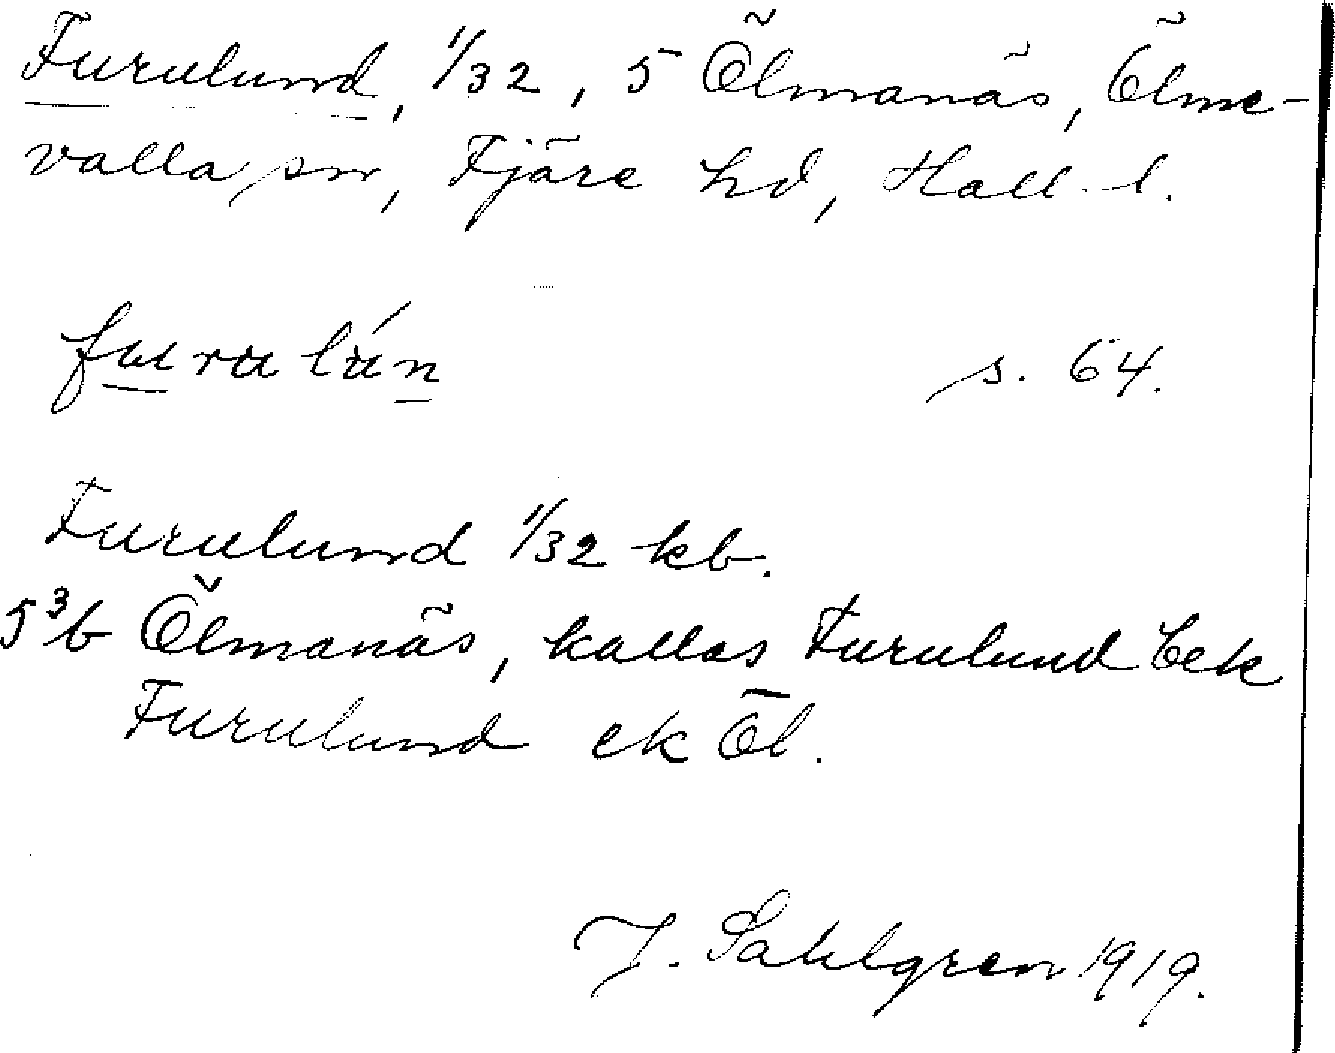 Furulund, 1/32, 5 Ölmanäs, Ölme-
valla sn, Fjäre hd, Hall. l.
furulún s. 64.
Furulund 1/32 kb.
5³/b Ölmanäs, kallas Furulund
Furulund ek Öl.
J. Sahlgren 1919.